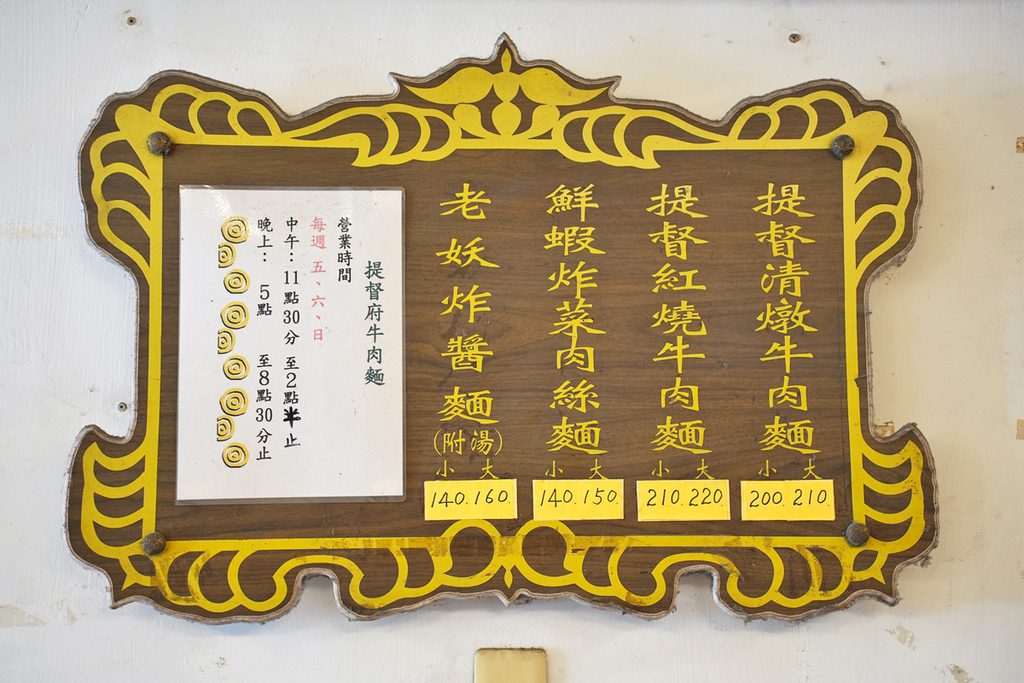 提督清燉牛肉麵
小 大
200.210.
提督紅燒牛肉麵
小 大
210.220.
鮮蝦炸菜肉絲麵
小 大
140.150.
老妖炸醬麵(附湯)
小 大
140.160.
提督府牛肉麵
營業時間
每週 五、六、日
中午：11點30分 至2點半止
晚上： 5點 至8點30分止